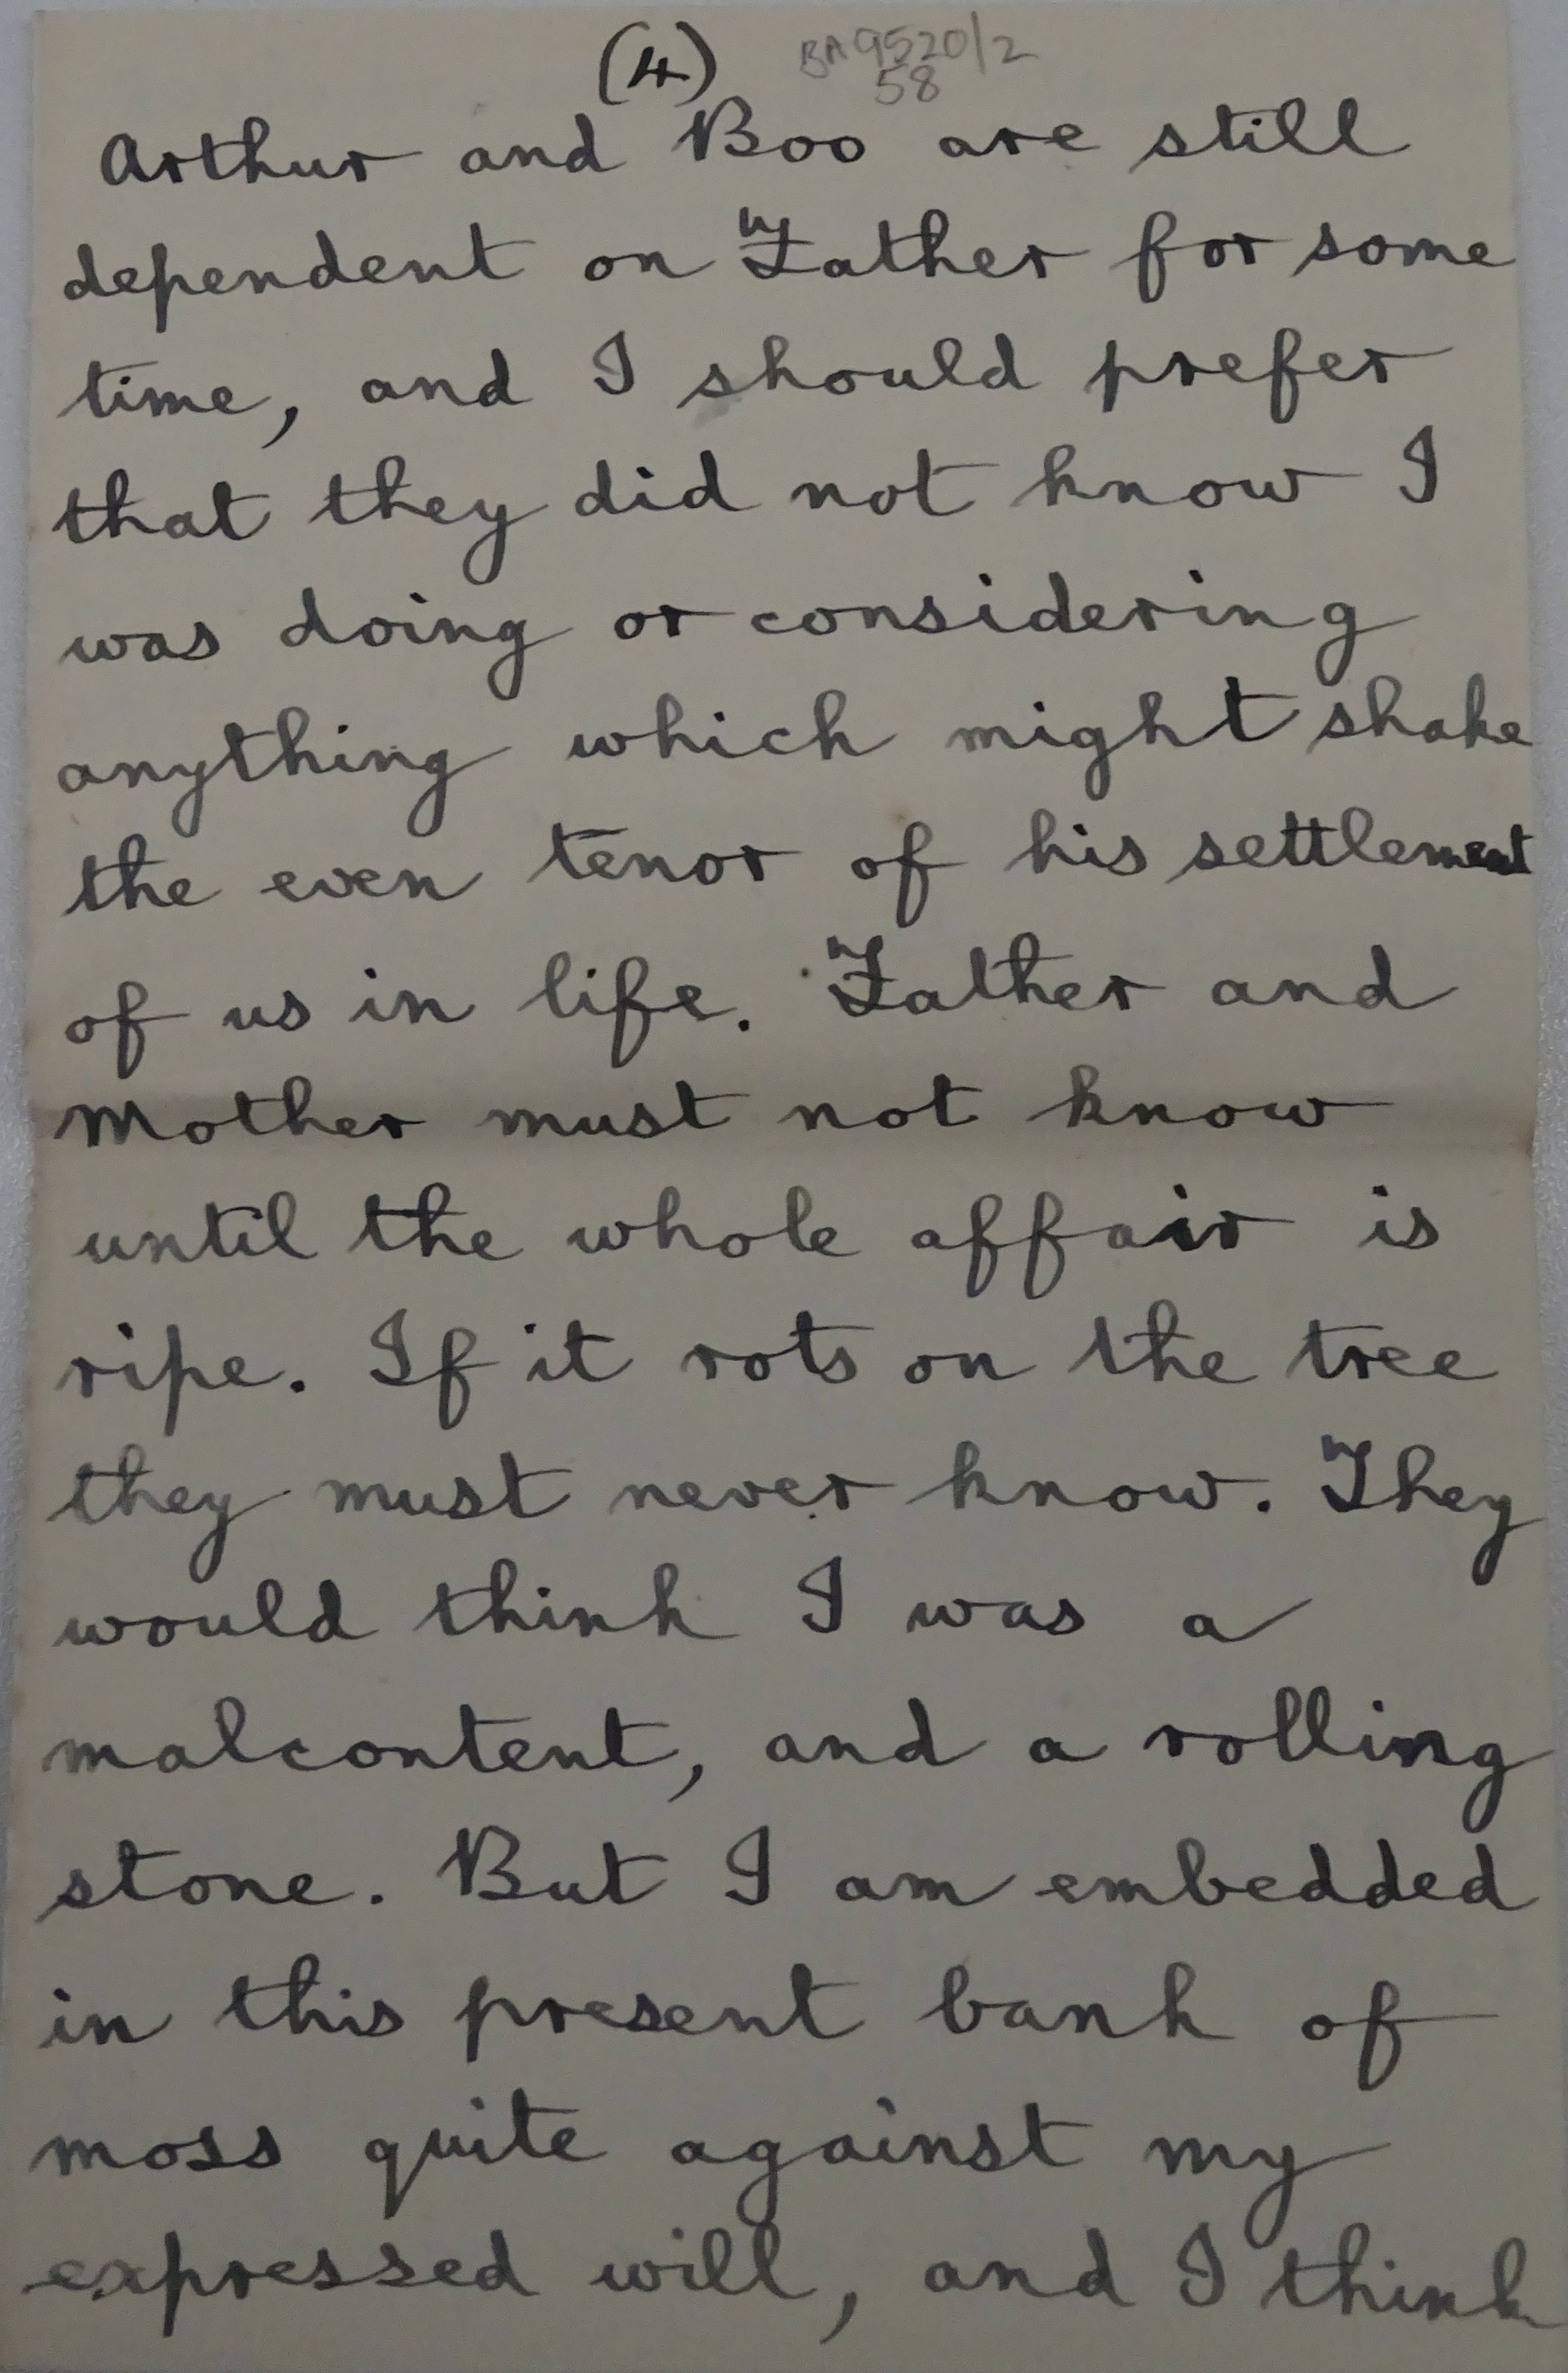 (4) BA9520/2
58
Arthur and Boo are still
dependent on Father for some
time, and I should prefer
that they did not know I
was doing or considering
anything which might shake
the even tenor of his settlement
of us in life. Father and
Mother must not know
until the whole affair is
ripe. If it rots on the tree
they must never know. They
would think I was a
malcontent, and a rolling
stone. But I am embedded
in this present bank of
moss quite against my
expressed will, and I think